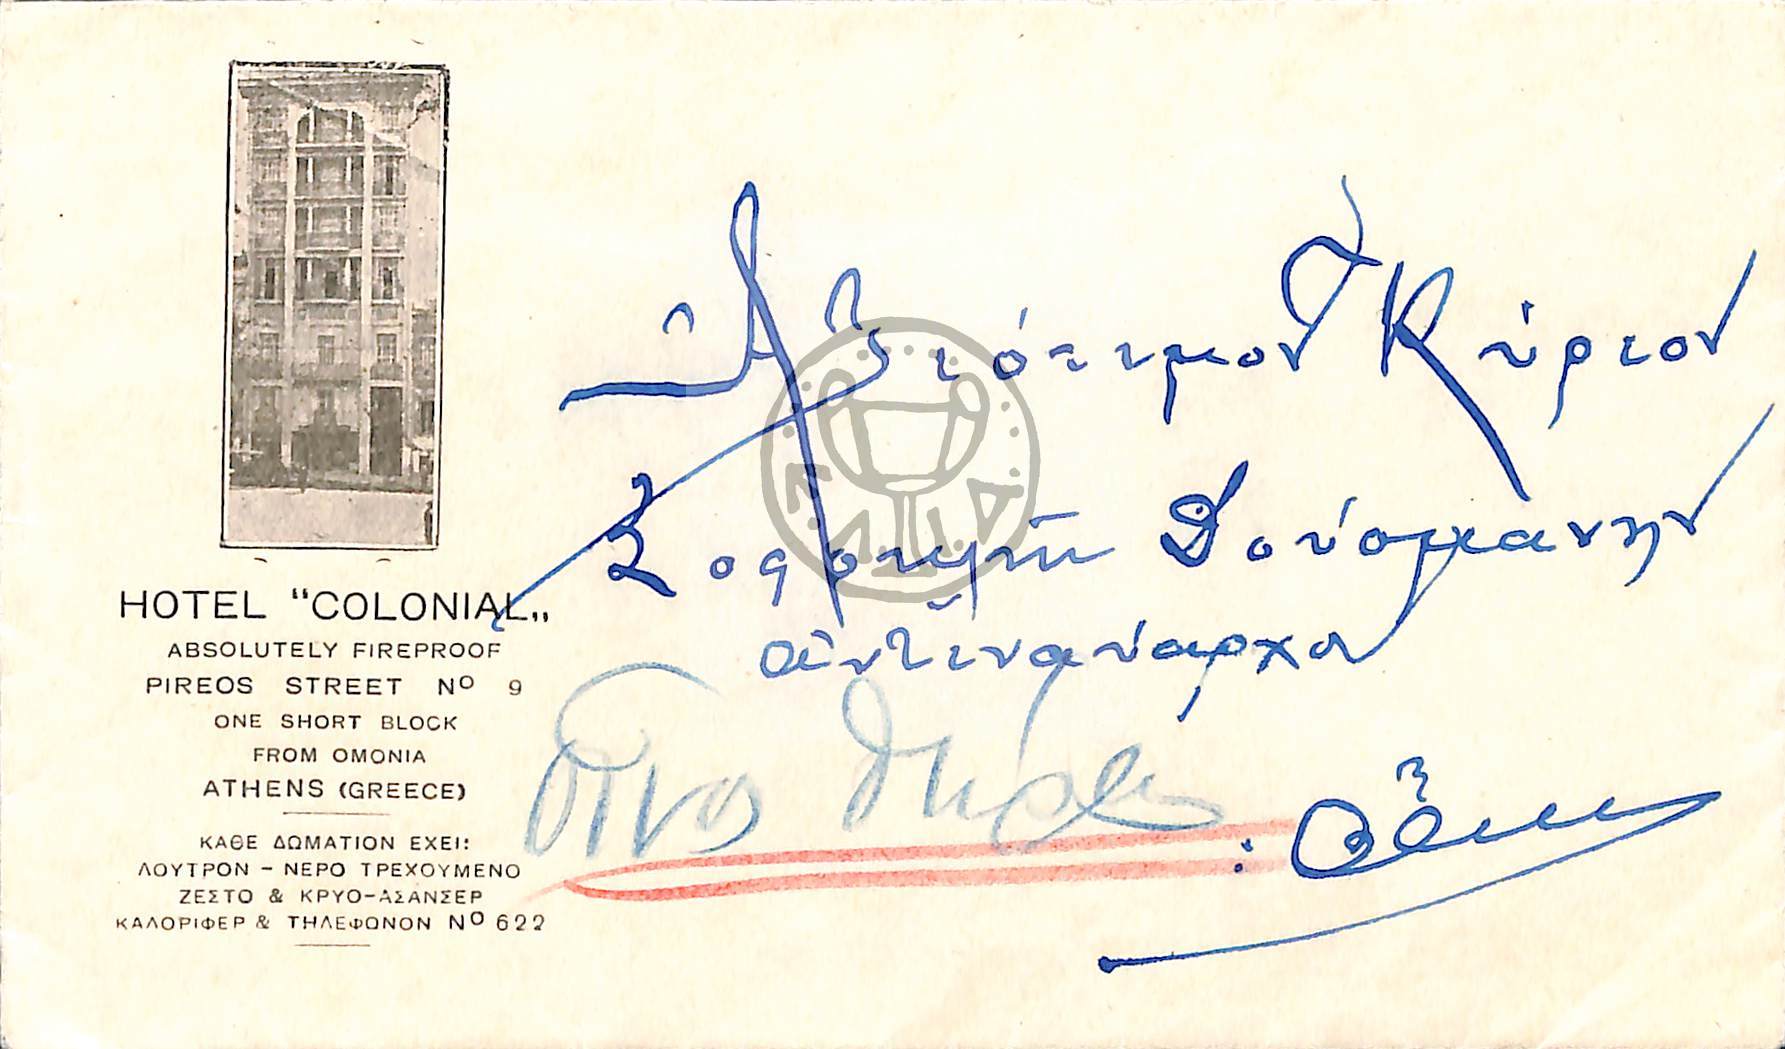 HOTEL "COLONIAL„
ABSOLUTELY FIREPROOF
PIREOS STREET Nº 9
ONE SHORT BLOCK
FROM OMONIA
ATHENS (GREECE)
ΚΑΘΕ ΔΩΜΑΤΙΟΝ ΕΧΕΙ:
ΛΟΥΤΡΟΝ - ΝΕΡΟ ΤΡΕΧΟΥΜΕΝΟ
ΖΕΣΤΟ & ΚΡΥΟ-ΑΣΑΝΣΕΡ
ΚΑΛΟΡΙΦΕΡ & ΤΗΛΕΦΩΝΟΝ Nº 622
Ἀξιότιμον Κύριον
Σοφοκλῆν Δούσμανην
ἀντιναύαρχον